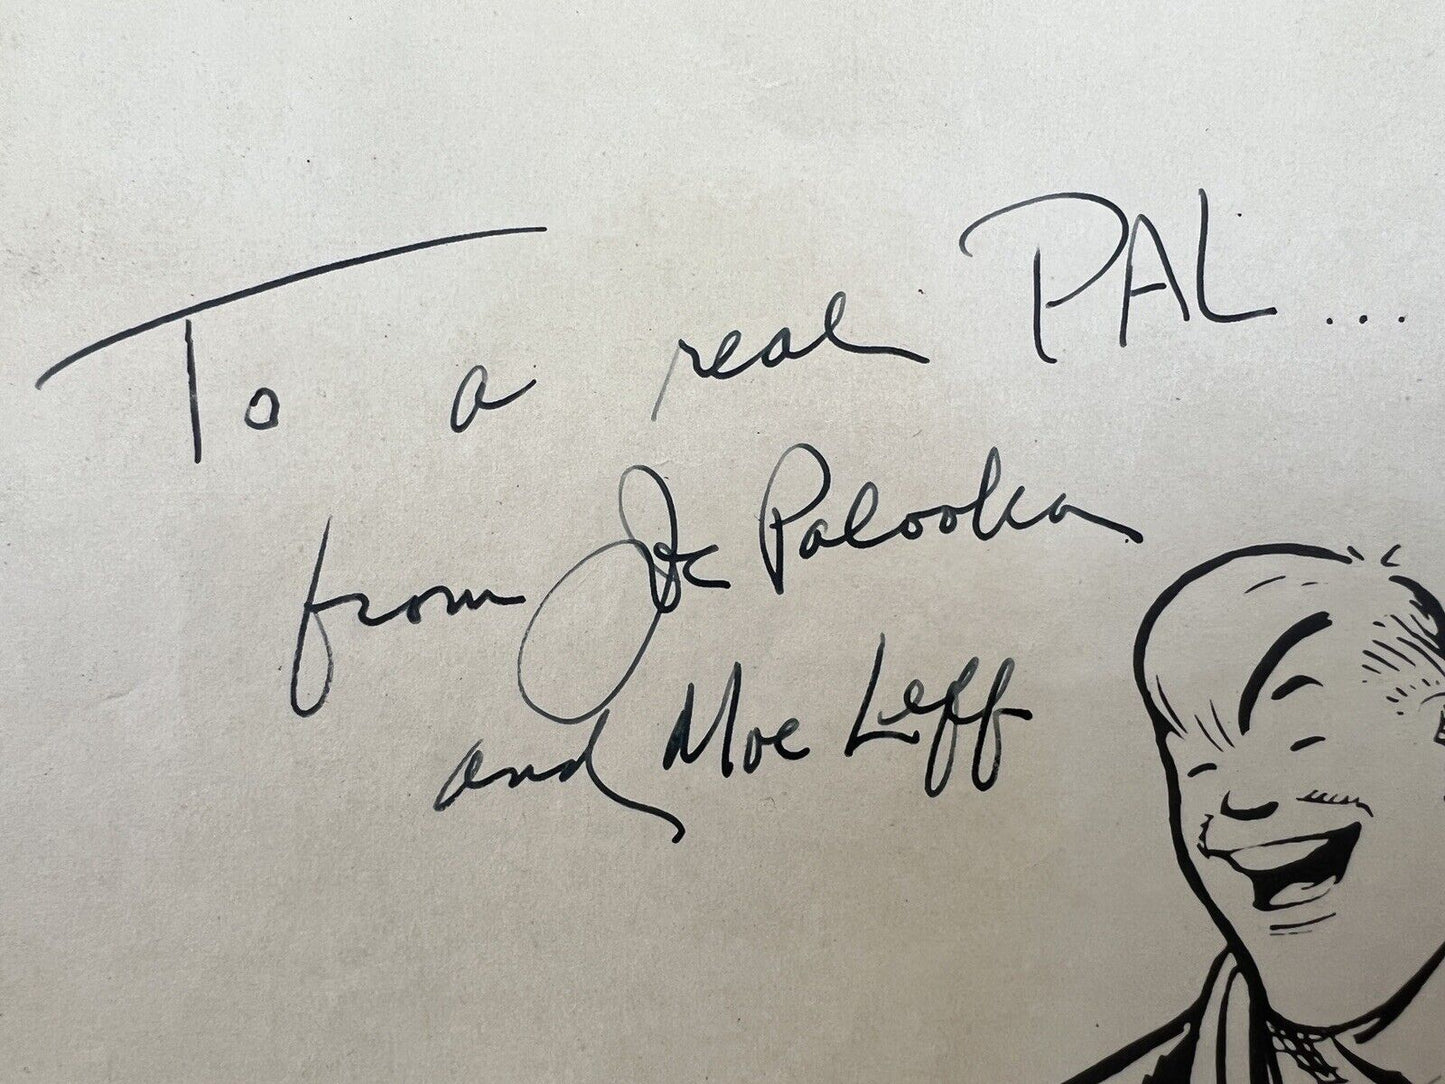 To a real PAL...
from Joe Palooka
and Moe Leff